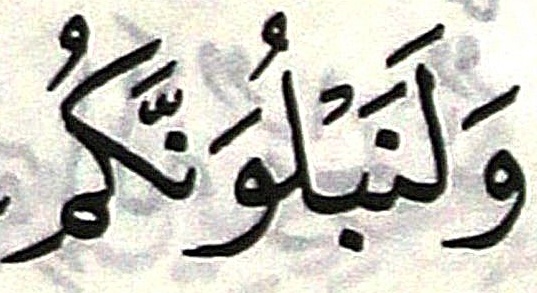 وَلَنَبْلُوَنَّكُمُ